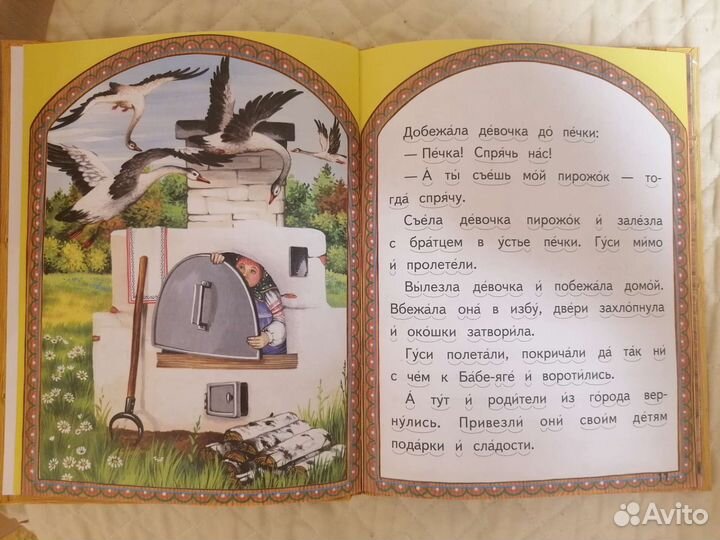 Добежа́ла де́вочка до́ пе́чки:
— Пе́чка! Спря́чь на́с!
— А́ ты́ съе́шь мо́й пирожо́к — то-
гда́ спря́чу.
Съе́ла де́вочка пирожо́к и́ зале́зла
с бра́тцем в у́стье пе́чки. Гу́си ми́мо
и́ пролете́ли.
Вы́лезла де́вочка и́ побежа́ла домо́й.
Вбежа́ла она́ в избу́, две́ри захло́пнула
и́ око́шки затвори́ла.
Гу́си полета́ли, покрича́ли да́ та́к ни́
с че́м к Ба́бе-яге́ и́ вороти́лись.
А́ ту́т и́ роди́тели и́з го́рода вер-
ну́лись. Привезли́ они́ свои́м де́тям
пода́рки и́ сла́дости.
11
Avito